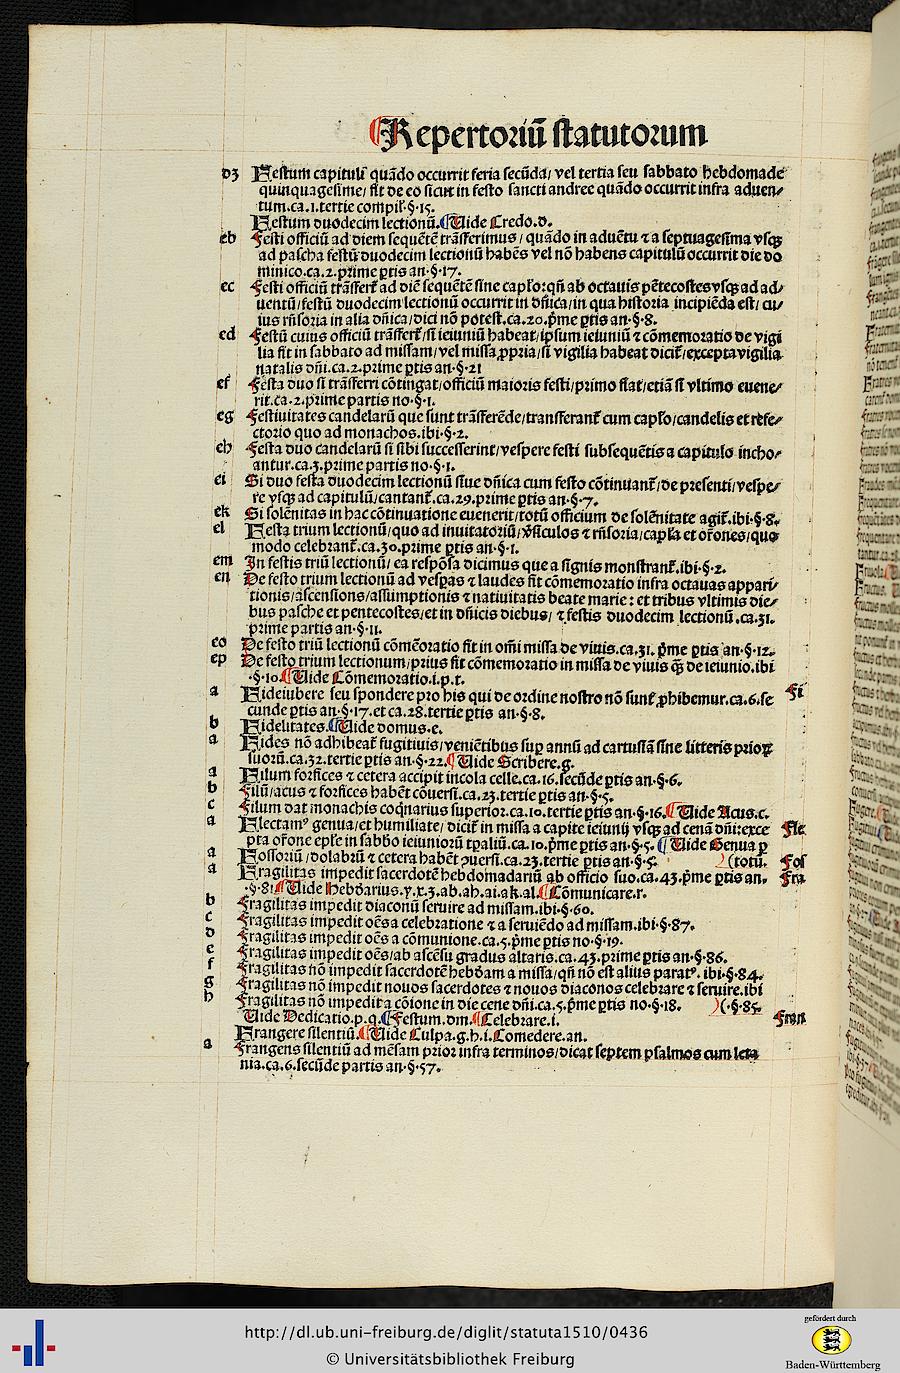 Repertoriū statutorum
dz Festum capituli quādo occurrit feria secūda/ vel tertia seu sabbato hebdomade
quinquagesime/ fit de eo sicut in festo sancti andree quādo occurrit infra aduen/
tum.ca.1.tertie compil̄.§.15.
Festum duodecim lectionū. Uide Credo.d.
eb Festi officiū ad diem sequētē trāsferimus/ quādo in aduētu ⁊ a septuagesima vsq̄
ad pascha festū duodecim lectionū habēs vel nō habens capitulū occurrit die do
minico.ca.2.prime ꝑtis an.§.17.
ec Festi officiū trāsfert̄ ad diē sequētē sine capl̄o:qn̄ ab octauis pētecostes vsq̄ ad ad/
uentū/festū duodecim lectionū occurrit in dn̄ica/in qua historia incipiēda est/ cu/
ius rn̄soria in alia dn̄ica/dici nō potest.ca.20.p̄me ꝑtis an.§.8.
ed Festū cuius officiū trāsfert̄/si ieiuniū habeat/ipsum ieiuniū ⁊ cōmemoratio de vigi
lia fit in sabbato ad missam/vel missa ꝓpria/si vigilia habeat dicit̄/excepta vigilia
natalis dn̄i.ca.2.prime ꝑtis an.§.21
ef Festa duo si trāsferri cōtingat/officiū maioris festi/primo fiat/etiā si vltimo euene/
rit.ca.2.prime partis no.§.1.
eg Festiuitates candelarū que sunt trāsferēde/transferant̄ cum capl̄o/candelis et refe/
ctorio quo ad monachos.ibi.§.2.
eh Festa duo candelarū si sibi successerint/vespere festi subsequētis a capitulo incho/
antur.ca.3.prime partis no.§.1.
ei Si duo festa duodecim lectionū siue dn̄ica cum festo cōtinuant̄/de presenti/vespe/
re vsq̄ ad capitulū/cantant̄.ca.29.prime ꝑtis an.§.7.
ek Si solēnitas in hac cōtinuatione euenerit/totū officium de solēnitate agit̄.ibi.§.8.
el Festa trium lectionū/quo ad inuitatoriū/v̄siculos ⁊ rn̄soria/capl̄a et or̄ones/quo
modo celebrant̄.ca.30.prime ꝑtis an.§.1.
em In festis triū lectionū/ ea respōsa dicimus que a signis monstrant̄.ibi.§.2.
en De festo trium lectionū ad vesꝑas ⁊ laudes fit cōmemoratio infra octauas appari/
tionis/ascensionis/assumptionis ⁊ natiuitatis beate marie: et tribus vltimis die/
bus pasche et pentecostes/et in dn̄icis diebus/ ⁊ festis duodecim lectionū.ca.31.
prime partis an.§.11.
eo De festo triū lectionū cōmēoratio fit in om̄i missa de viuis.ca.31.p̄me ꝑtis an.§.12.
ep De festo trium lectionum/prius fit cōmemoratio in missa de viuis q̄ de ieiunio.ibi
.§.10. Uide Cōmemoratio.i.p.t.
a Fideiubere seu spondere pro his qui de ordine nostro nō sunt ꝓhibemur.ca.6.se Fi
cunde ꝑtis an.§.17.et ca.28.tertie ꝑtis an.§.8.
b Fidelitates. Uide domus.e.
a Fides nō adhibeat̄ fugitiuis/veniētibus sup̄ annū ad cartusiā sine litteris prioꝝ
suorū.ca.32.tertie ꝑtis an.§.22. Uide Scribere.g.
a Filum forfices ⁊ cetera accipit incola celle.ca.16.secūde ꝑtis an.§.6.
b Filū/acus ⁊ forfices habēt cōuersi.ca.23.tertie ꝑtis an.§.5.
c Filum dat monachis coqnarius superior.ca.10.tertie ꝑtis an.§.16. Uide Acus.c.
a Flectamꝰ genua/et humiliate/dicit̄ in missa a capite ieiunij vsq̄ ad cenā dn̄i:exce Fle
pta or̄one epl̄e in sabb̄o ieiuniorū tꝑaliū.ca.10.p̄me ꝑtis an.§.5. Uide Genua p
a Fossoriū/dolabrū ⁊ cetera habēt ꝯuersi.ca.23.tertie ꝑtis an.§.5. )(totū. Fos
a Fragilitas impedit sacerdotē hebdomadariū ab officio suo.ca.43.p̄me ꝑtis an. Fra
.§.81. Uide Hebdarius.y.x.z.ab.ah.ai.ak.al. Cōmunicare.r.
b Fragilitas impedit diaconū seruire ad missam.ibi.§.60.
c Fragilitas impedit oēs a celebratione ⁊ a seruiēdo ad missam.ibi.§.87.
d Fragilitas impedit oēs a cōmunione.ca.5.p̄me ꝑtis no.§.19.
e Fragilitas impedit oēs/ab ascēsu gradus altaris.ca.43.prime ꝑtis an.§.86.
f Fragilitas nō impedit sacerdotē hebd̄am a missa/qn̄ nō est alius paratꝰ.ibi.§.84.
g Fragilitas nō impedit nouos sacerdotes ⁊ nouos diaconos celebrare ⁊ seruire.ibi
h Fragilitas nō impedit a cōione in die cene dn̄i.ca.5.p̄me ꝑtis no.§.18. )(.§.85.
Uide Dedicatio.p.q. Festum.dm. Celebrare.i. Fran
Frangere silentiū. Uide Culpa.g.h.i. Comedere.an.
a Frangens silentiū ad mēsam prior infra terminos/dicat septem psalmos cum leta
nia.ca.6.secūde partis an.§.57.
http://dl.ub.uni-freiburg.de/diglit/statuta1510/0436
© Universitätsbibliothek Freiburg
gefördert durch
Baden-Württemberg